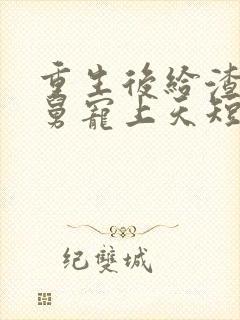 重生後給渣
舅寵上天短
纪雙城